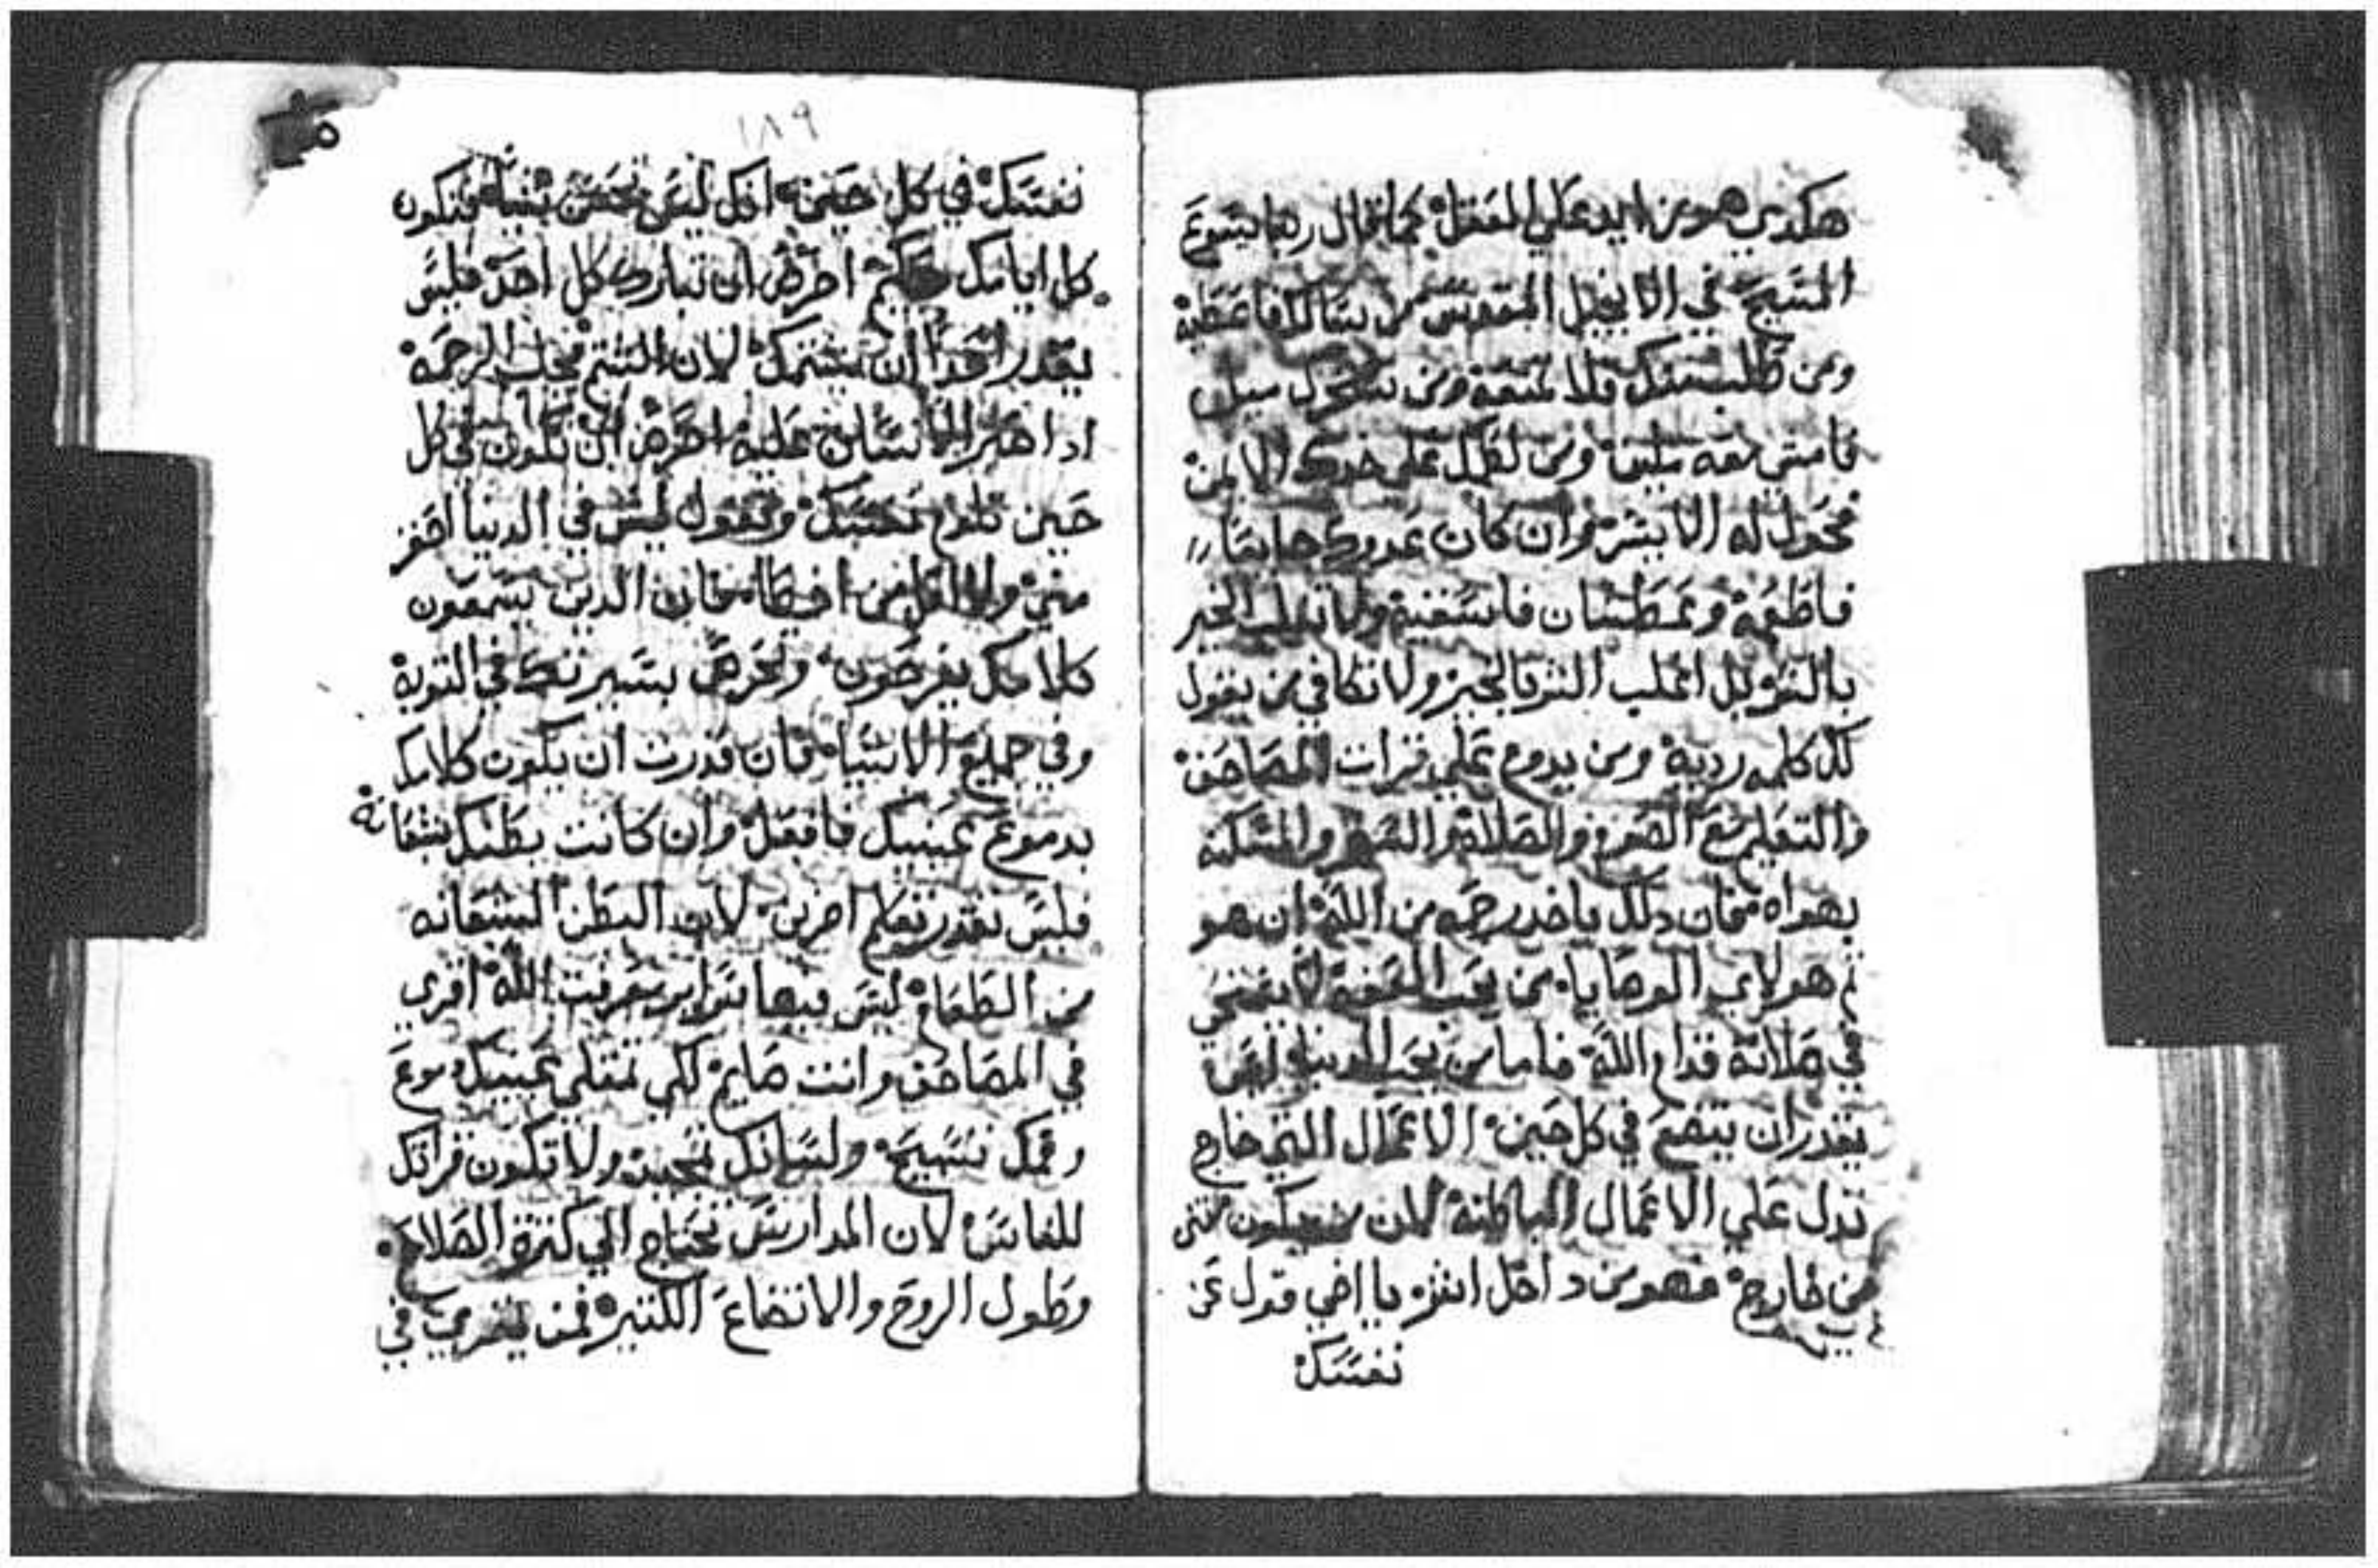 هكدي هو من ايد علي العقل كما قال ربنا يسوع
المسيح في الانجيل المقدس من يسالك فاعطيه
ومن طلب منك فلا تمنعه ومن سخرك ميل
فامشي معه ميلين ومن لطمك علي خدك الايمن
فحول له الايسر وان كان عدوك جايعا
فاطعمه وعطشان فاسقيه ولا تغلب الخير
بالشر بل اغلب الشر بالخير ولا تكافي من يقول
لك كلمه رديه ومن يدوم علي قرات المصاحف
والتعليم مع الصوم والصلاة والسهر والمسكنه
بهداه فان دلك ياخد رحمه من الله ان هو
تم هولاي الوصايا من يحب لا يستحي
في صلاته قدام الله فاما من يحب الدنيا ليس
يقدر ان يتضع في كل حين الاعمال التي خارج
تدل علي الاعمال الباطنه لان من يكون
من خارج فهو من داخل انظر يا اخي قول عن
نفسك
١٨٩
نفسك في كل حين انك ليس تحسن شيا فتكون
كل ايامك حكيم احرص ان تبارك كل احد فليس
يقدر احدا ان يشتمك لان الشتم الرحمه
ادا الانسان عليه احرص ان تكون في كل
حين تلوم نفسك وتقول ليس في الدنيا احقر
مني ولا اقل من فان الدين يسمعون
كلامك يفرحون وتحرص بسيرتك في التوبة
وفي جميع الاشيا فان قدرت ان يكون كلامك
بدموع عينيك فافعل وان كانت بطنك شبعانة
فليس تقدر تعلم اخرين لان البطن الشبعانه
من الطعام ليس فيها سراير معرفت الله اقري
في المصاحف وانت صايم لكي تمتلي عينيك دموع
وفمك تسبيح ولسانك تمجيد ولا تكون قراتك
للنعاس لان المدارس تحتاج الي كترة الصلاة
وطول الروح والاتضاع الكتير فمن يقري في